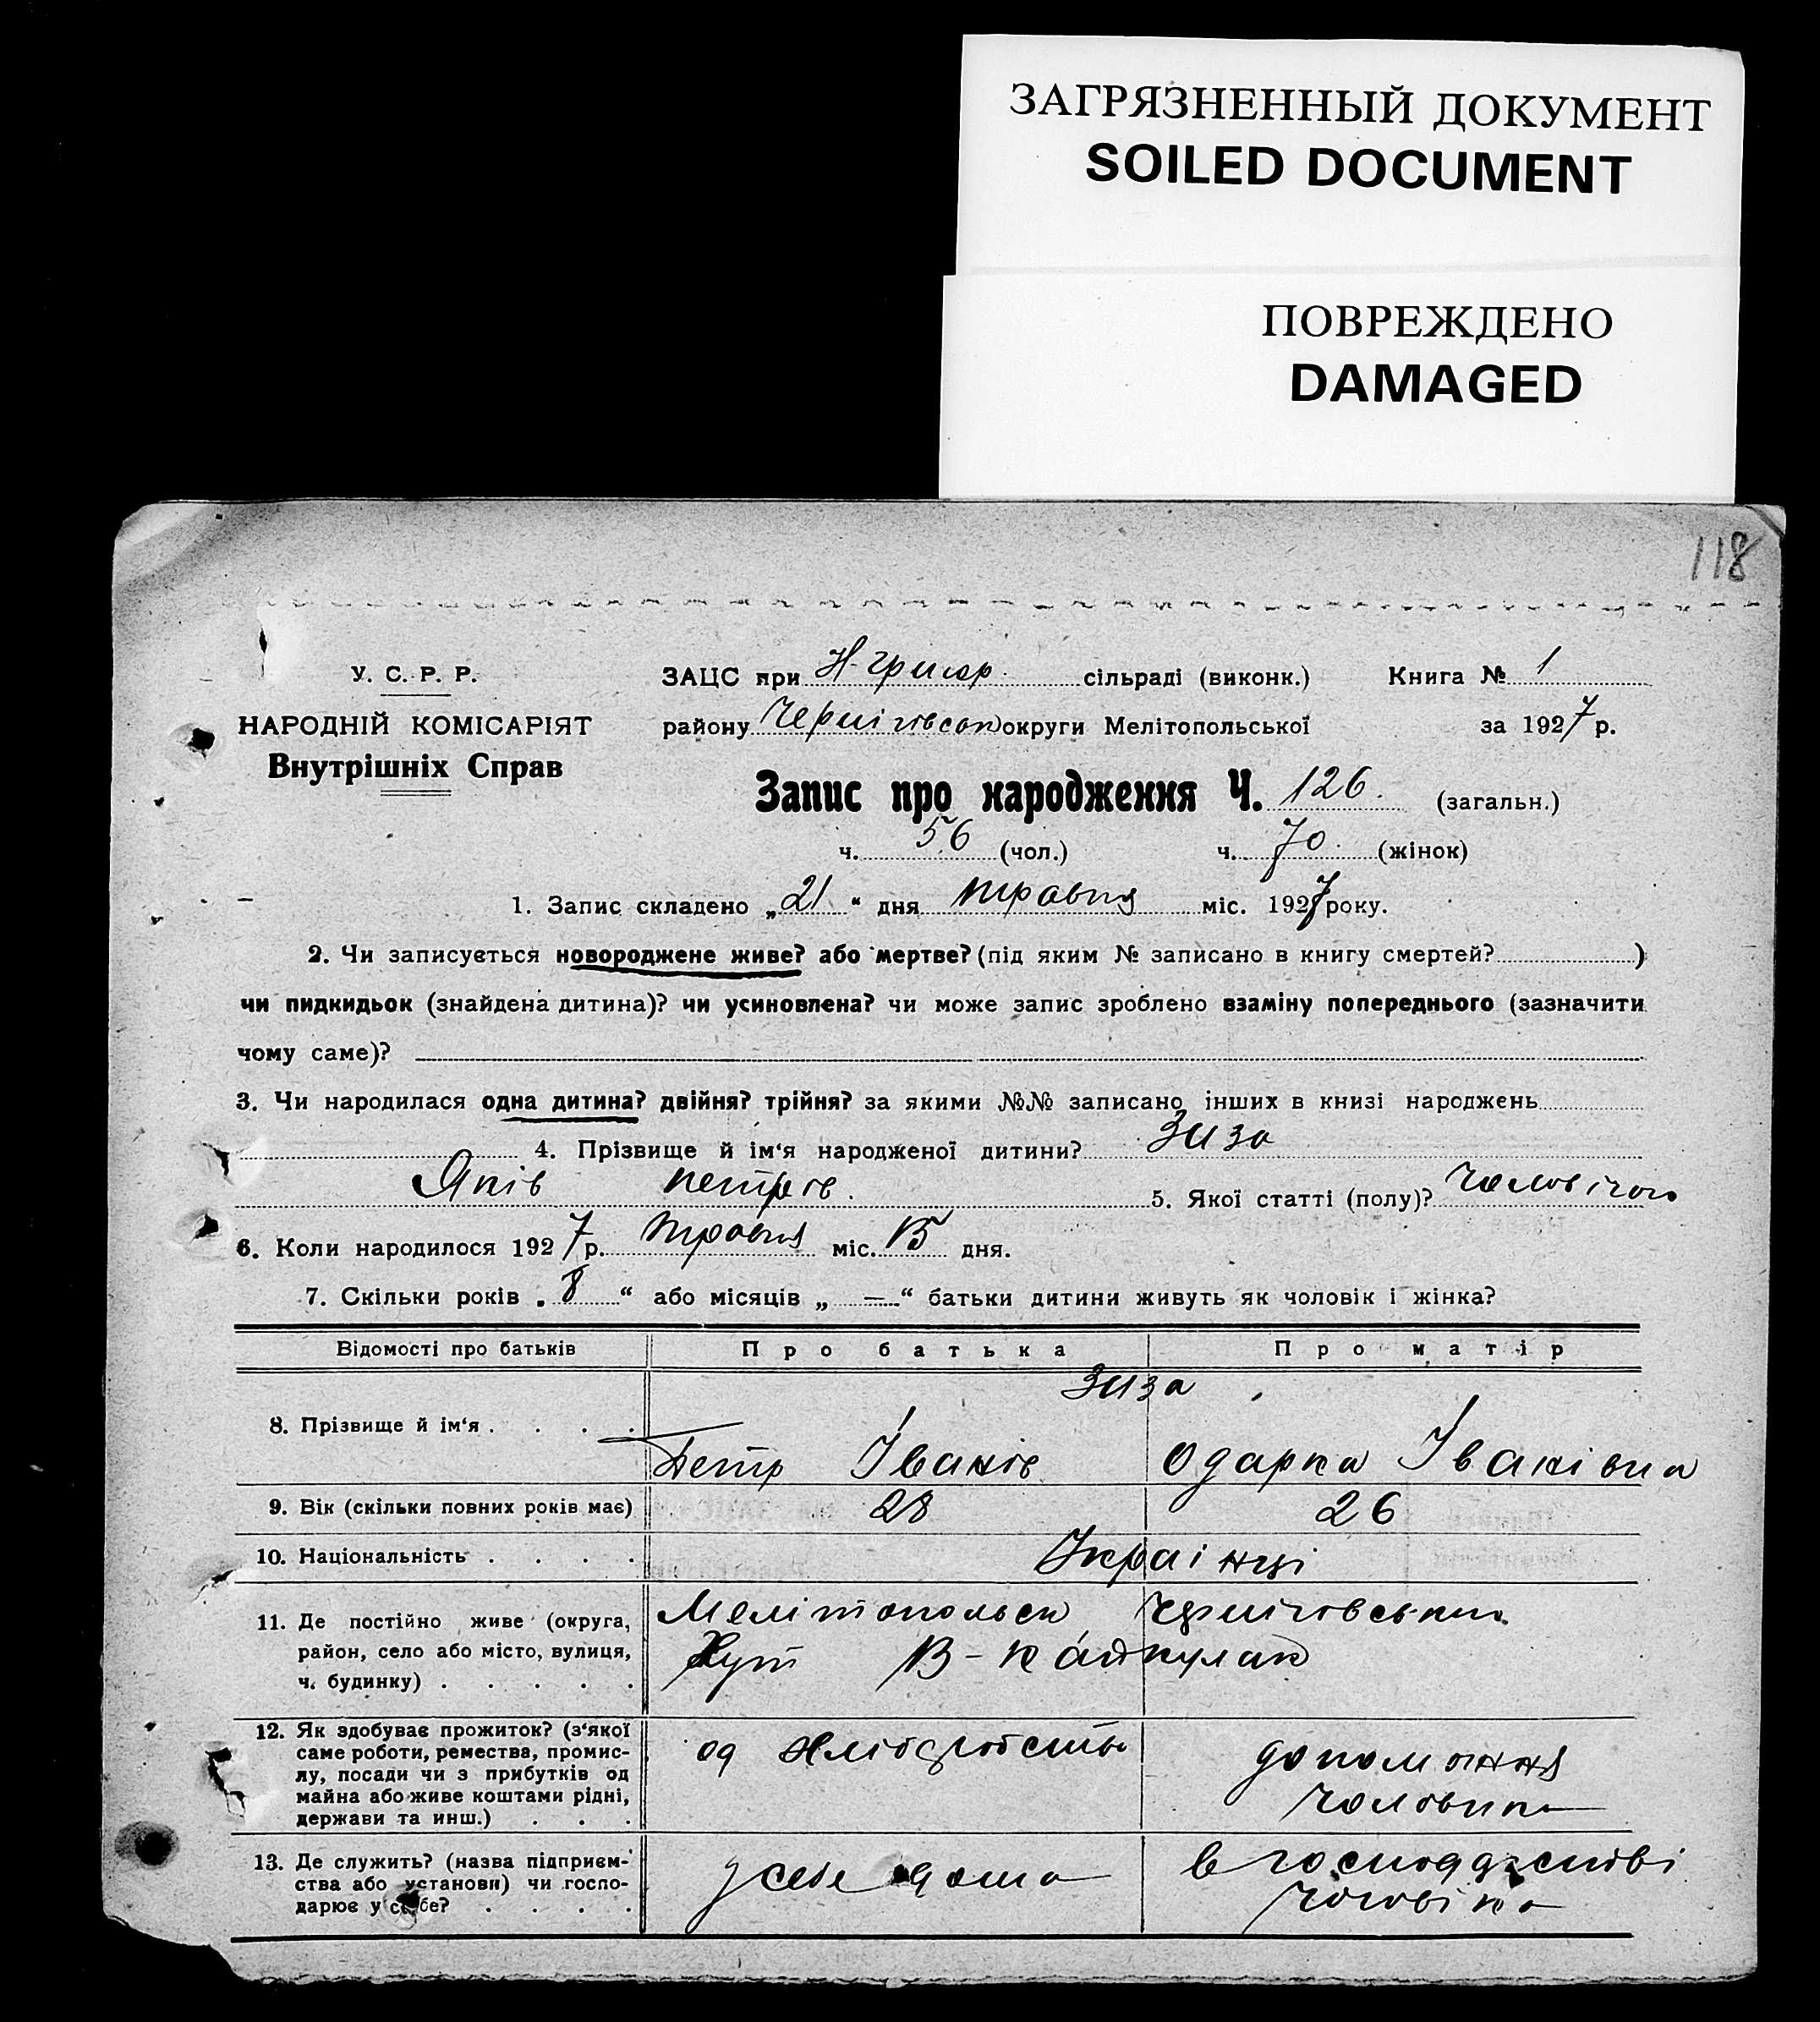 ЗАГРЯЗНЕННЫЙ ДОКУМЕНТ
SOILED DOCUMENT
ПОВРЕЖДЕНО
DAMAGED
118
У. С. Р. Р.
НАРОДНІЙ КОМІСАРІЯТ
Внутрішніх Справ
ЗАЦС при Н-григор. сільраді (виконк.) Книга № 1
району Чернігівськ округи Мелітопольської за 1927 р.
Запис про народження Ч. 126. (загальн.)
ч. 56 (чол.) ч. 70. (жінок)
1. Запис складено „21“ дня травня міс. 1927 року.
2. Чи записується новороджене живе? або мертве? (під яким № записано в книгу смертей? )
чи пидкидьок (знайдена дитина)? чи усиновлена? чи може запис зроблено взаміну попереднього (зазначити
чому саме)?
3. Чи народилася одна дитина? двійня? трійня? за якими №№ записано інших в книзі народжень
4. Прізвище й ім‘я народженої дитини? Зиза
Яків Петрів. 5. Якої статті (полу)? чоловічої
6. Коли народилося 1927 р. травня міс. 15 дня.
7. Скільки років „8“ або місяців „—“ батьки дитини живуть як чоловік і жінка?
Відомості про батьків Про батька Про матір
8. Прізвище й ім‘я . . . . Зиза
Петр Іванів Одарка Іванівна
9. Вік (скільки повних років має) 28 26
10. Національність . . . . Українці
11. Де постійно живе (округа, район, село або місто, вулиця, ч. будинку) . . . . .
Мелітопольск Чернігівськи
Хут В-Каінкулак
12. Як здобуває прожиток? (з‘якої саме роботи, ремества, промислу, посади чи з прибутків од майна або живе коштами рідні, держави та инш.) . . .
од хліборобства
допоможня
чоловика
13. Де служить? (назва підприємства або установи) чи господарює у себе? . . . .
у себе дома
в господарстві
чоловіка